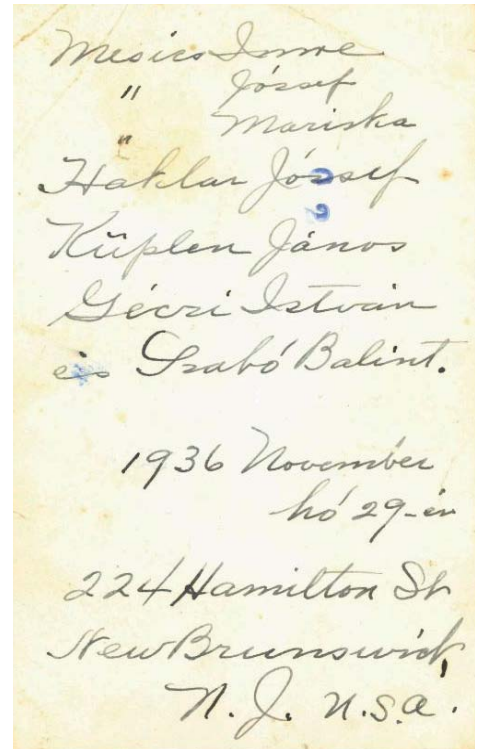 Mesics Imre
" József
" Mariska
Haklar József
Küplen János
Géczi István
és Szabó Balint.
1936 November
hó 29-én
224 Hamilton St
New Brunswick,
N. J. U.S.A.